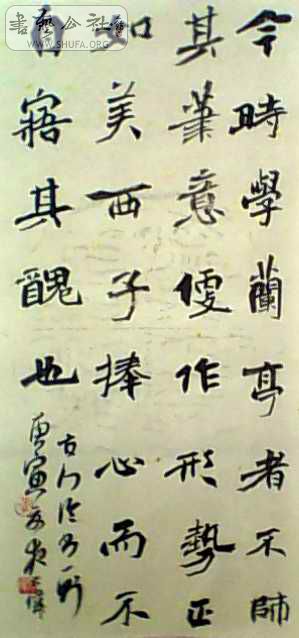 今時學蘭亭者不師
其筆意便作形勢正
如美西子捧心而不
自寤其醜也
庚寅
書藝公社
WWW.SHUFA.ORG